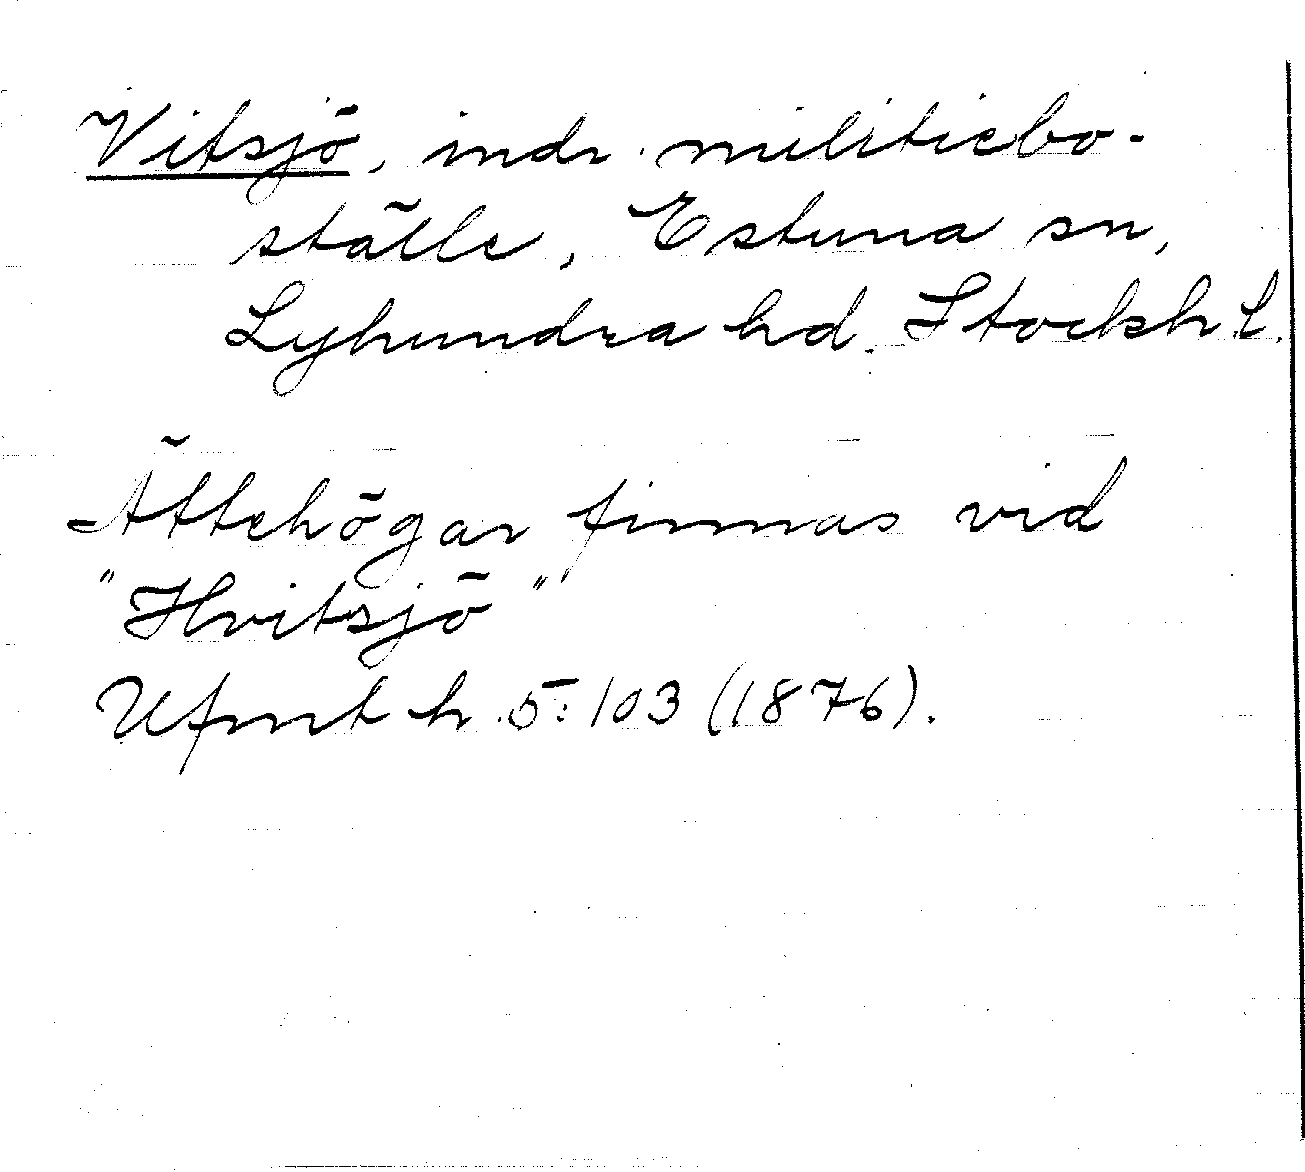 Vitsjö, indr militiebo-
ställe, Estuna sn,
Lyhundra hd. Stockh l.
Ättehögar finnas vid
"Hvitsjö"
Ufmt h 5:103 (1876).